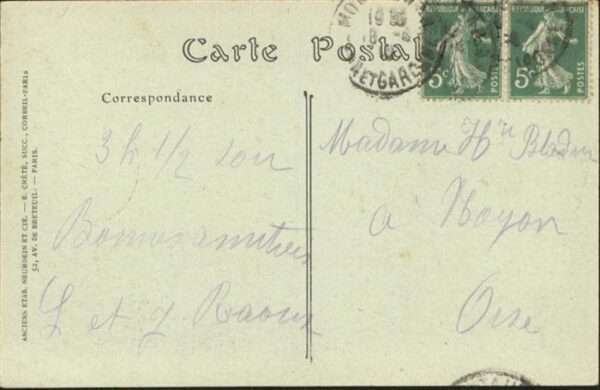 Carte Postale
Correspondance
3h 1/2 son
Bonnes amitiés
L et J Raoux
Madame Hri
à Noyon
Oise
ANCIENS ETAB. NEURDEIN ET CIE. — E. CRÉTÉ, SUCC., CORBEIL-PARIS
52, AV. DE BRETEUIL. — PARIS.
REPUBLIQUE FRANÇAISE
5c
POSTES
REPUBLIQUE FRANÇAISE
5c
POSTES
ET GARE